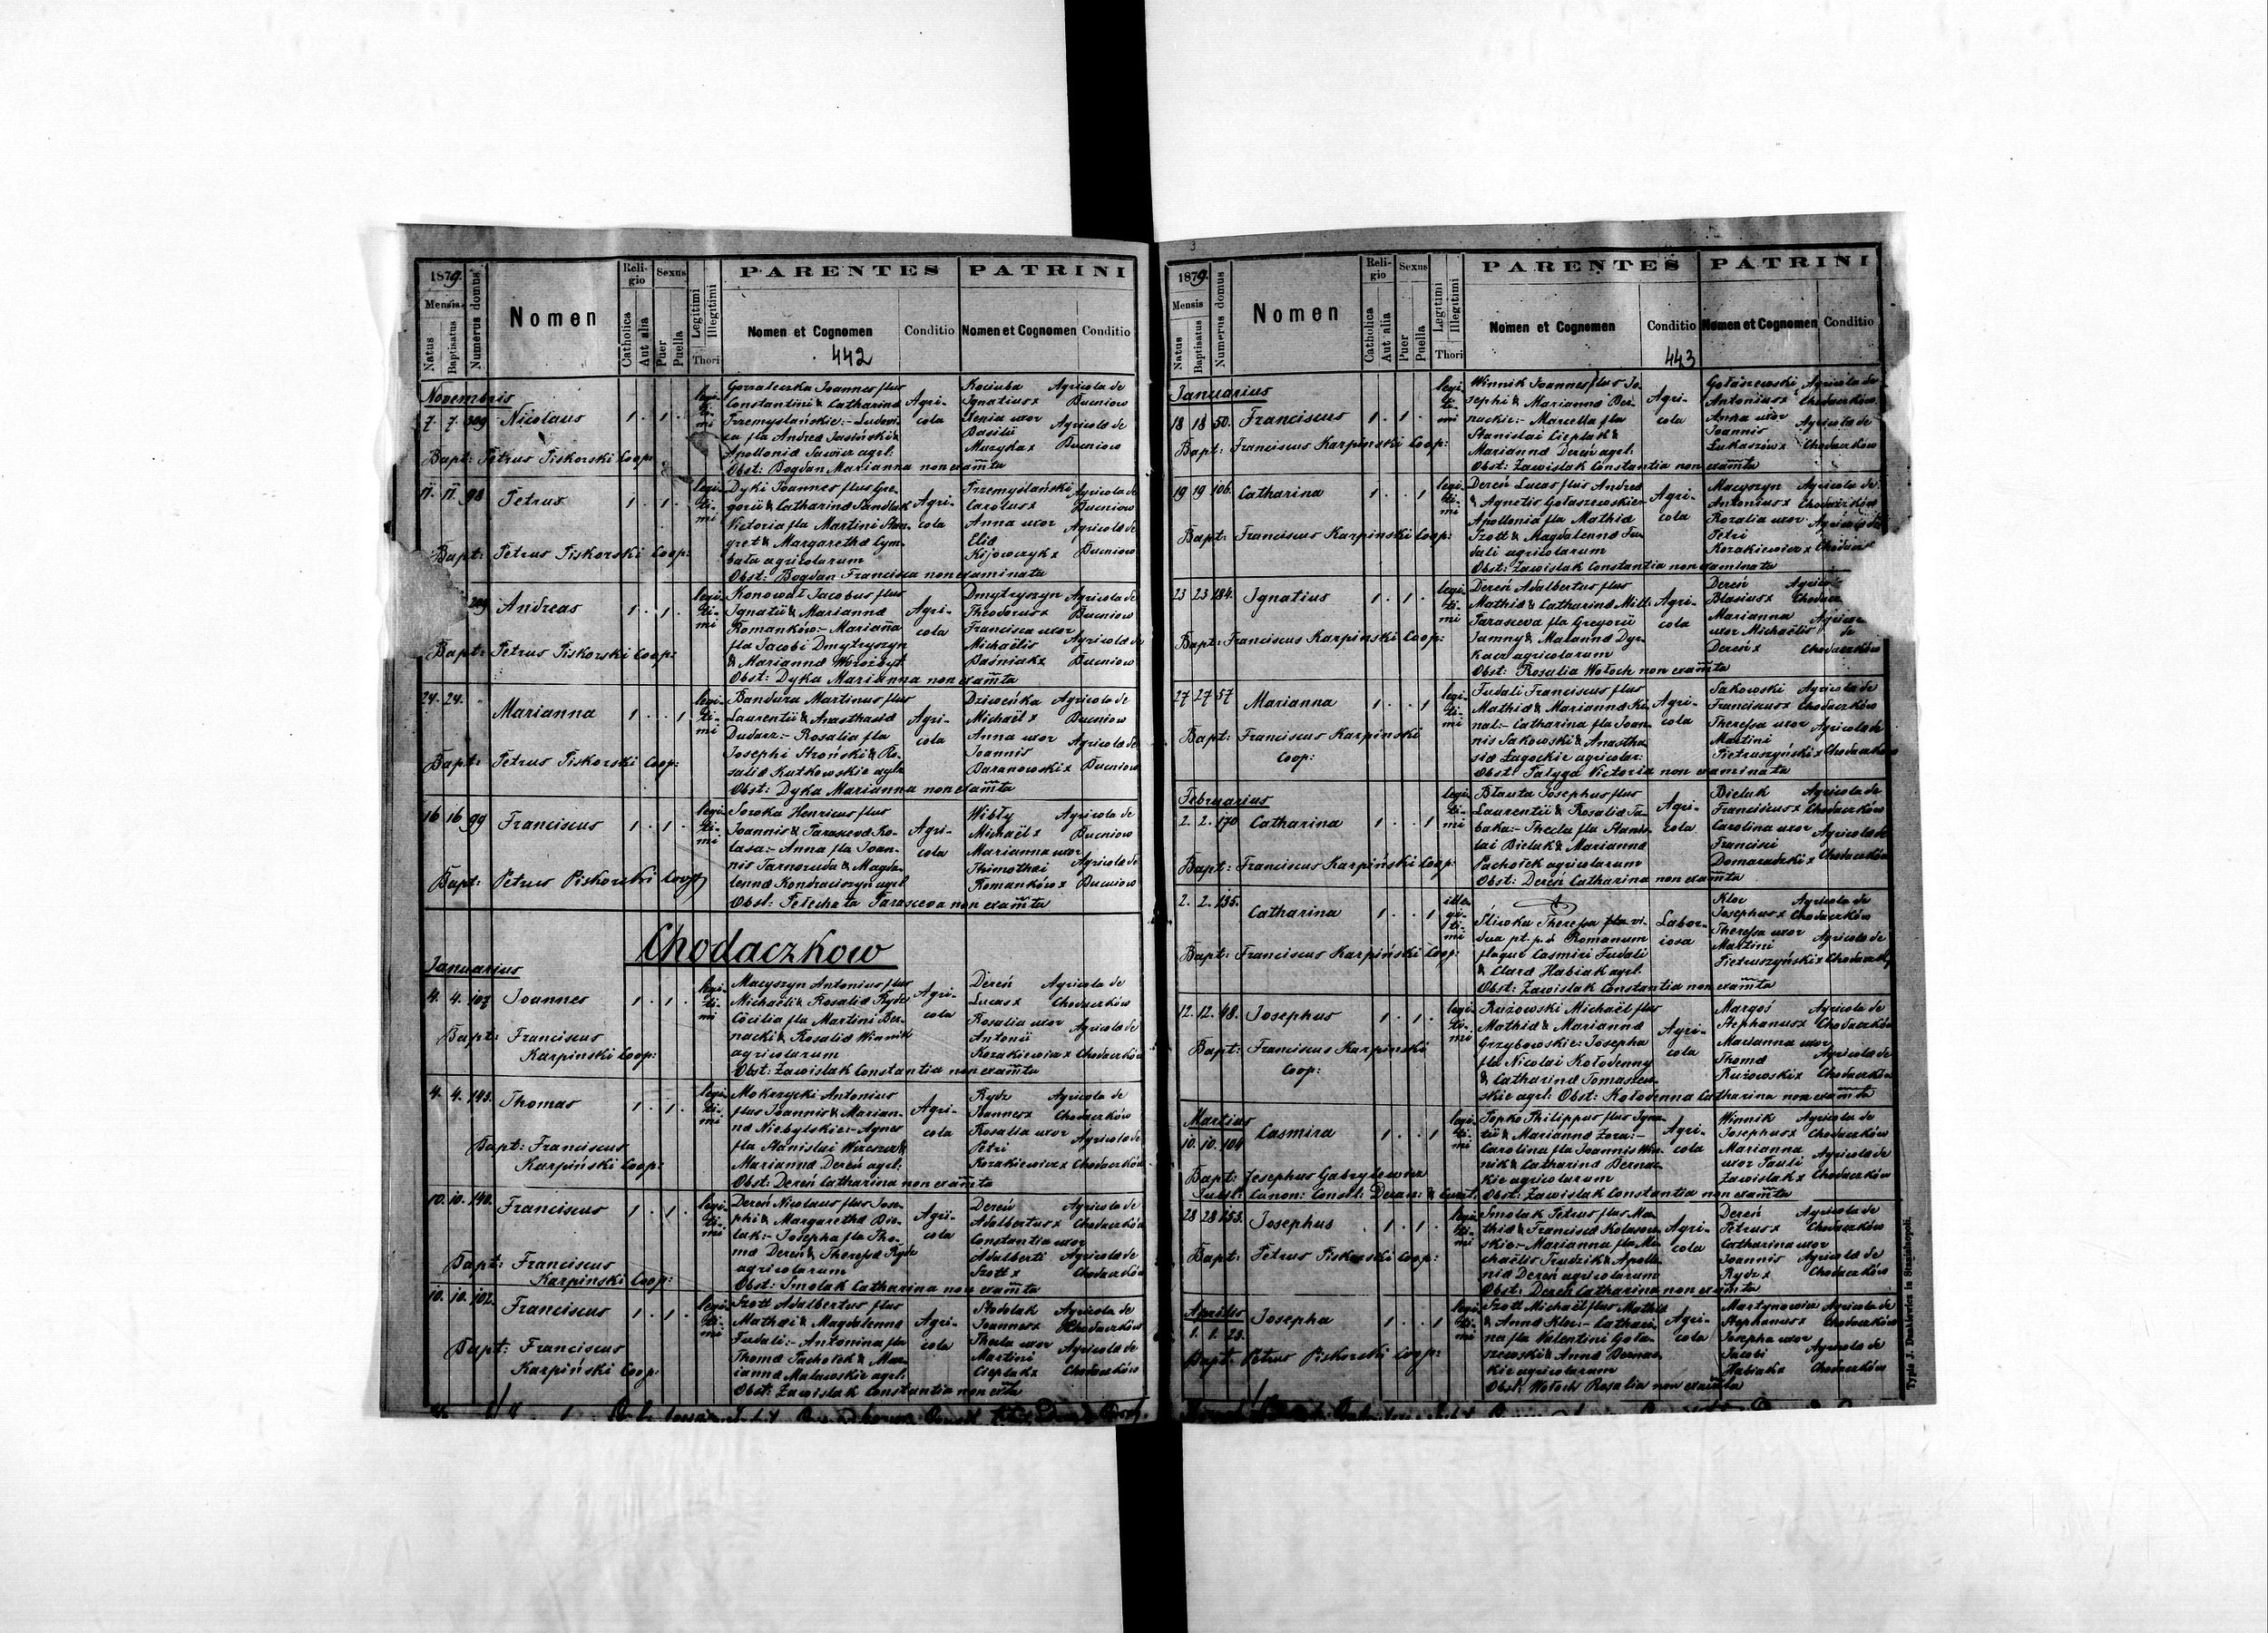 1879.
Mensis
Natus
Baptisatus
Numerus domus
Nomen
Religio
Catholica
Aut alia
Sexus
Puer
Puella
Legitimi
Illegitimi
Thori
PARENTES
Nomen et Cognomen
Conditio
442
PATRINI
Nomen et Cognomen
Conditio
Novembris
7. 7. 309 Nicolaus 1 . 1 .
legitimi
Gorzaleczka Joannes flus
Constantini & Catharina
Przemyslańskie:- Ludovi-
ca fla Andrea Jasiński &
Apollonia Sawicz agrl:
Obst: Bogdan Marianna non examta
Agricola
Kociuba Agricola de
Ignatius x Bucniow
Xenia uxor Agricola de
Basilii
Muzyka x Bucniow
Bapt: Petrus Piskorski Coop:
17. 17. 98 Petrus 1 . 1 .
legitimi
Dyki Joannes flus Gre-
gorii & Catharina Sandlak
Victoria fla Martini
& Margaretha Cym-
bała agricolarum
Obst: Bogdan Francisca non examinata
Agricola
Przemyślański Agricola de
Carolus x Bucniow
Anna uxor Agricola de
Elia
Kijowczyk x Bucniow
Bapt: Petrus Piskorski Coop:
209 Andreas 1 . 1 .
legitimi
Konował Jacobus flus
Ignatii & Marianna
Romanków:- Marianna
fla Jacobi Dmytryszyn
& Marianna Worożbyt
Obst: Dyka Marianna non examta
Agricola
Dmytryszyn Agricola de
Theodorus x Bucniow
Francisca uxor
Michaëlis Agricola de
Baśniak x Bucniow
Bapt: Petrus Piskorski Coop:
24. 24. Marianna 1 . . 1
legitimi
Bandura Martinus flus
Laurentii & Anasthasia
Dudarz:- Rosalia fla
Josephi Stroński & Ro-
salia Kutkowskie agrl:
Obst: Dyka Marianna non examta
Agricola
Dziweńka Agricola de
Michaël x Bucniow
Anna uxor
Joannis Agricola de
Baranowski x Bucniow
Bapt: Petrus Piskorski Coop:
16 16 99 Franciscus 1 . 1 .
legitimi
Soroka Henricus flus
Joannis & Parasceva Ko-
lasa:- Anna fla Joan-
nis Tarnowuda & Magda-
lenna Kondraciszyn agrl
Obst: Pełechata Parasceva non examta
Agricola
Wibły Agricola de
Michaël x Bucniow
Marianna uxor
Thimothei Agricola de
Romanków x Bucniow
Bapt: Petrus Piskorski Coop
Chodaczkow
Januarius
4. 4. 107 Joannes 1 . 1 .
legitimi
Macyszyn Antonius flus
Michaëli & Rosalia Rydz
Cöcilia fla Martini Ber-
nacki & Rosalia Winnik
agricolarum
Obst: Zawislak Constantia non examta
Agricola
Dereń Agricola de
Lucas x Chodaczków
Rosalia uxor Agricola de
Antonii
Kozakiewicz x Chodaczków
Bapt: Franciscus
Karpinski Coop:
4. 4. 143. Thomas 1 . 1 .
legitimi
Mokrzycki Antonius
flus Joannis & Marian-
na Niebylskie:- Agnes
fla Stanislai &
Marianna Dereń agrl:
Obst: Dereń Catharina non examta
Agricola
Rydz Agricola de
Joannes x Chodaczków
Rosalia uxor
Petri Agricola de
Kozakiewicz x Chodaczków
Bapt: Franciscus
Karpiński Coop:
10. 10. 140. Franciscus 1 . 1 .
legitimi
Dereń Nicolaus flus Jose-
phi & Margaretha Bie-
lak:- Josepha fla Tho-
ma Dereń & Theressa Rydz
agricolarum
Obst: Smolak Catharina non examta
Agricola
Dereń Agricola de
Adalbertus x Chodaczków
Constantia uxor
Adalberti Agricola de
Szott x Chodaczków
Bapt: Franciscus
Karpinski Coop:
10. 10. 102. Franciscus 1 . 1 .
legitimi
Szott Adalbertus flus
Mathai & Magdalenna
Fudali:- Antonina fla
Thoma Pachołek & Mar-
ianna Malawskie agrl:
Obst: Zawislak Constantia non exta
Agricola
Stodolak Agricola de
Joannes x Chodaczków
Thecla uxor
Martini Agricola de
Cieplak x Chodaczków
Bapt: Franciscus
Karpiński Coop:
1879.
Mensis
Natus
Baptisatus
Numerus domus
Nomen
Religio
Catholica
Aut alia
Sexus
Puer
Puella
Legitimi
Illegitimi
Thori
PARENTES
Nomen et Cognomen
Conditio
443
PATRINI
Nomen et Cognomen
Conditio
Januarius
18 18 50. Franciscus 1 . 1 .
legitimi
Winnik Joannes flus Jo-
sephi & Marianna Ber-
nackie:- Marcella fla
Stanislai Cieplak &
Marianna Dereń agrl:
Obst: Zawislak Constantia non examta
Agricola
Gołaszewski Agricola de
Antonius x Chodaczków
Anna uxor
Joannis Agricola de
Łukaszów x Chodaczków
Bapt: Franciscus Karpinski Coop:
19 19 106. Catharina 1 . . 1
legitimi
Dereń Lucas flus Andrea
& Agnetis Gołaszewskie-
Apollonia fla Mathia
Szott & Magdalenna Fu-
dali agricolarum
Obst: Zawislak Constantia non examinata
Agricola
Macyszyn Agricola de
Antonius x Chodaczków
Rozalia uxor Agricola de
Petri
Kozakiewicz x
Bapt: Franciscus Karpinski Coop:
23 23 184. Ignatius 1 . 1 .
legitimi
Dereń Adalbertus flus
Mathia & Catharina Mill:
Parasceva fla Gregorii
Jamny & Malanna Dyr-
kacz agricolarum
Obst: Rosalia Wołoch non examta
Agricola
Dereń
Blasius x
Marianna
uxor Michaëlis de
Dereń x Chodaczków
Bapt: Franciscus Karpinski Coop:
27 27 57 Marianna 1 . . 1
legitimi
Fudali Franciscus flus
Mathia & Marianna Ki-
nal:- Catharina fla Joan-
nis Sakowski & Anastha-
sia Łagockie agricolar:
Obst: Pałyga Victoria non examinata
Agricola
Sakowski Agricola de
Franciscus x Chodaczków
Theressa uxor Agricola de
Martini
Pietruszyński x Chodaczków
Bapt: Franciscus Karpinski
Coop:
Februarius
2. 2. 170 Catharina 1 . . 1
legitimi
Błauta Josephus flus
Laurentii & Rosalia Ta-
baka:- Thecla fla Stanis-
lai Bielak & Marianna
Pachołek agricolarum
Obst: Dereń Catharina non examta
Agricola
Bielak Agricola de
Franciscus x Chodaczków
Carolina uxor Agricola de
Francisci
Domaradzki x Chodaczków
Bapt: Franciscus Karpiński Coop:
2. 2. 135. Catharina 1 . . 1
illegitimi
Śliwka Theressa fla vi-
dua pt. p. d Romanum
flaque Casmiri Fudali
& Clara Habiak agrl.
Obst: Zawislak Constantia non examta
Laboriosa
Kloc Agricola de
Josephus x Chodaczków
Theressa uxor
Martini Agricola de
Pietruszyński x
Bapt: Franciscus Karpiński Coop:
12. 12. 48. Josephus 1 . 1 .
legitimi
Rużowski Michaël flus
Mathia & Marianna
Grzybowskie: Josepha
fla Nicolai Kołodenny
& Catharina Tomaszew-
skie agrl: Obst: Kołodenna Catharina non examta
Agricola
Margoś Agricola de
Stephanus x Chodaczków
Marianna uxor
Thoma Agricola de
Rużowski x Chodaczków
Bapt: Franciscus Karpinski
Coop:
Martius
10. 10. 104 Casmira 1 . . 1
legitimi
Topko Philippus flus Igna-
tii & Marianna Zora:-
Carolina fla Joannis Win-
nik & Catharina Bernac-
kie agricolarum
Obst: Zawislak Constantia non examta
Agricola
Winnik Agricola de
Josephus x Chodaczków
Marianna
uxor Pauli Agricola de
Zawislak x Chodaczków
Bapt: Josephus Gabrylowicz
28 28 153. Josephus 1 . 1 .
legitimi
Smolak Petrus flus Ma-
thia & Francisca Kolasow-
skie:- Marianna fla Mi-
chaëlis Trudzik & Apollo-
nia Dereń agricolarum
Obst: Dereń Catharina non examta
Agricola
Dereń Agricola de
Petrus x Chodaczków
Catharina uxor
Joannis Agricola de
Rydz x Chodaczków
Bapt: Petrus Piskorski Coop:
Aprilis
1. 1. 23. Josepha 1 . . 1
legitimi
Szott Michaël flus Mathia
& Anna Kloc:- Cathari-
na fla Valentini Goła-
szewski & Anna Bernac-
kie agricolarum
Obst: Wołoch Rosalia non examta
Agricola
Martynowicz Agricola de
Stephanus x Chodaczków
Josepha uxor
Jacobi Agricola de
Habiaka Chodaczków
Bapt. Petrus Piskorski Coop:
Typis J. Dankiewicz in Stanislaopoli.